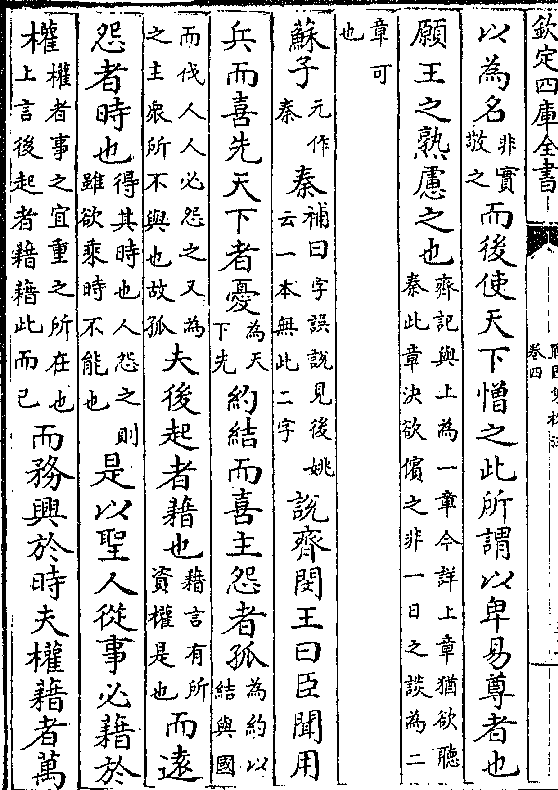 欽定四庫全書
卷四
以為名非實敬之而後使天下憎之此所謂以卑易尊者也
願王之熟慮之也齊記與上為一章今詳上章猶欲聽秦此章決欲儐之非一日之談為二
章可也
蘇子元作秦秦補曰字誤說見後姚云一本無此二字說齊閔王曰臣聞用
兵而喜先天下者憂為天下先約結而喜主怨者孤為約以結與國
而伐人人必怨之又為之主衆所不與也故孤夫後起者藉也藉言有所資權是也而遠
怨者時也得其時也人怨之則雖欲乘時不能也是以聖人從事必藉於
權權者事之宜重之所在也上言後起者藉藉此而已而務興於時夫權藉者萬